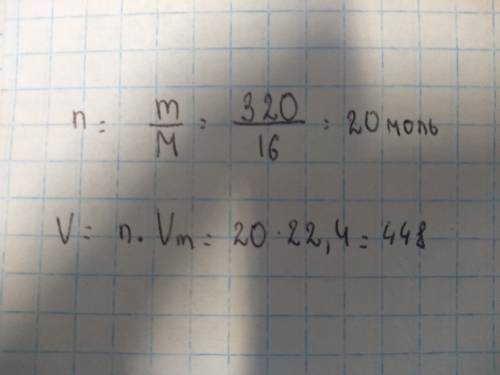 n = m/M = 320/16 = 20 моль
V = n · Vm = 20 · 22,4 = 448